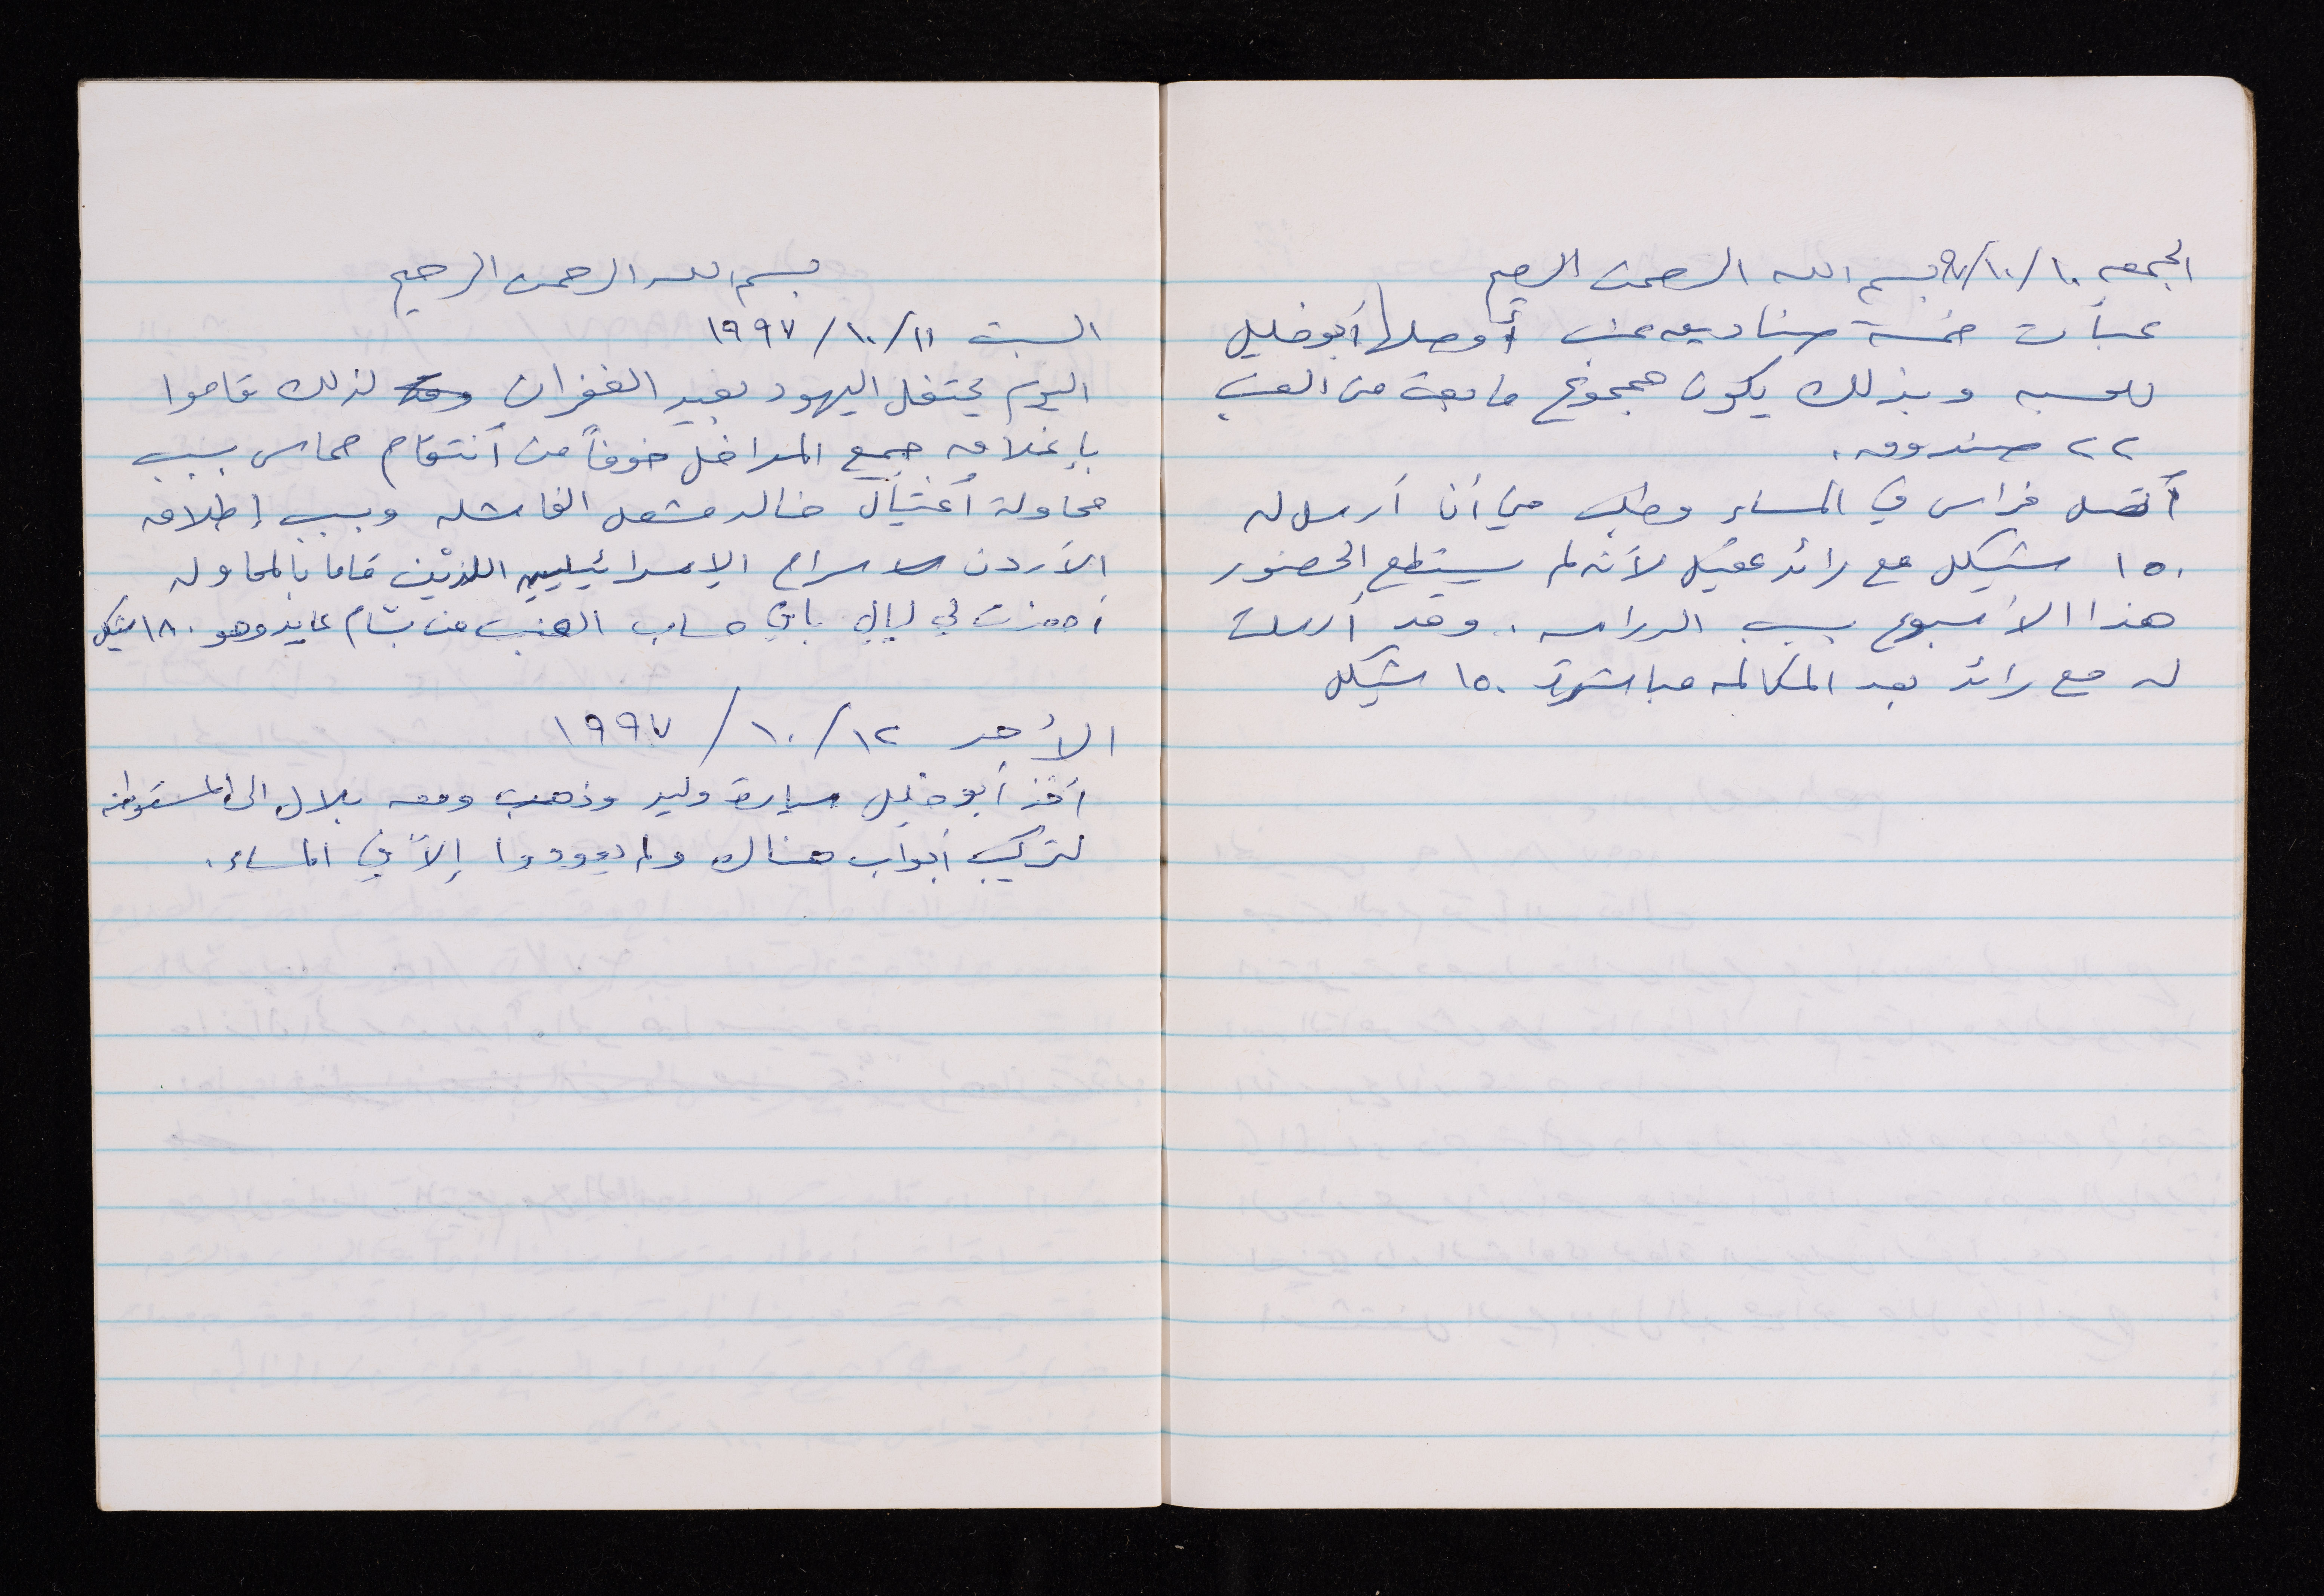 الجمعه ١٠/١٠/٩٧ بسم الله الرحمن الرحيم
عبأت خمسة صناديق عنب أوصلها أبو خليل
للحسبه وبذلك يكون مجموع ما بعت من العنب
٢٢ صندوق.
أتصل فراس في المساء وطلب مني أن أرسل له
١٥٠ شيكل مع رائد عقيل لأنه لم يستطع الحضور
هذا الأسبوع بسبب الدراسه. وقد أرسلت
له مع رائد بعد المكالمه مباشرة ١٥٠ شيكل
بسم الله الرحمن الرحيم
السبت ١١/١٠/١٩٩٧
اليوم يحتفل اليهود بعيد الغفران لذلك قاموا
بإغلاق جميع المداخل خوفاً من أنتقام حماس بسبب
محاولة أغتيال خالد مشعل الفاشله وبسبب إطلاق
الأردن سراح الإسرائيليين اللذين قاما بالمحاوله
أحضرت لي ليالي باقي حساب العنب من بسام عايد وهو ١٨٠ شيكل
الأحد ١٢/١٠/١٩٩٧
أخذ أبو خليل سيارة وليد وذهب ومعه بلال الى المستوطنه
لتركيب أبواب هناك ولم يعودوا إلاّ في المساء.